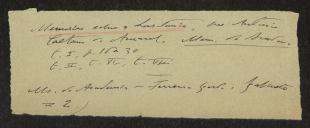 Memorias sobre a Lusitania, por Antonio
Caetano do Amaral. Mem. da Acad.
t. I, p. 16 a 30
t. II, t. VI, t. VII
Ms. da Academia — Ferreira Gord.
= 2